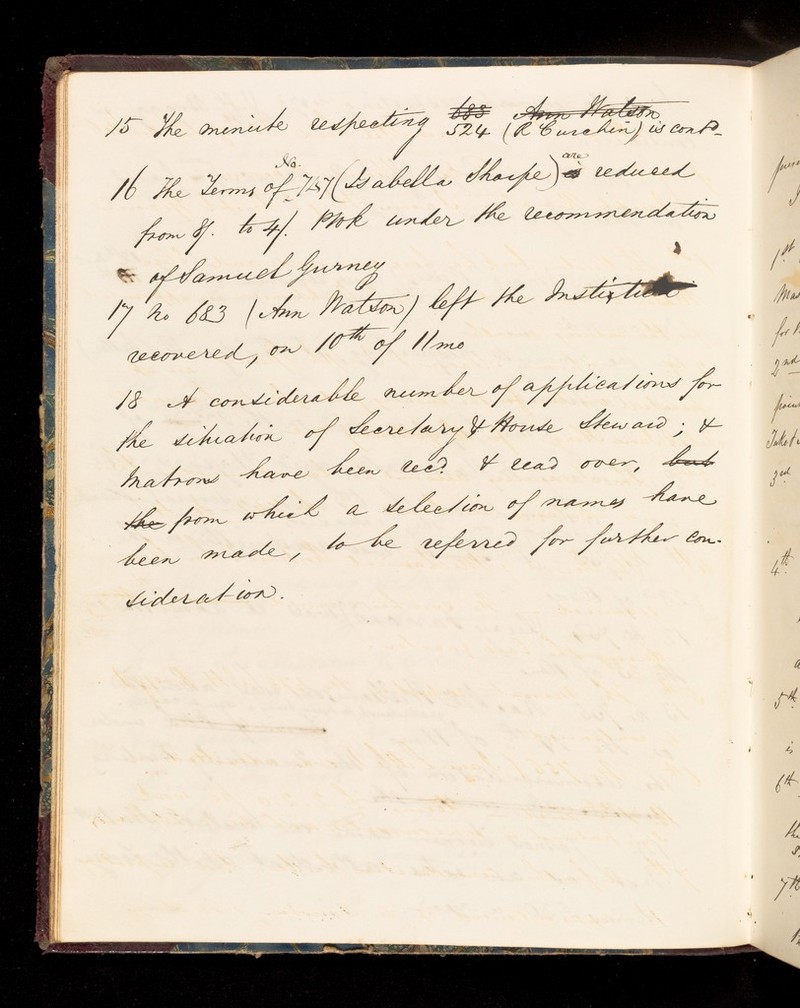 15 The minute respecting 683 Ann Watson
524 (R Curchin) is contd.
16 The Terms of No. 747 (Isabella Sharpe) is are reduced
from 8/. to 4/. P Wk under the recommendation
of Samuel Gurney
17 No 683 (Ann Watson) left the Institution
recovered, on 10th of 11 mo
18 A considerable number of applications for
the situation of Secretary & House Steward; &
Matrons have been recd. & read over, but
the from which a selection of names have
been made, to be referred for further con-
sideration.
1st
for
2nd
3rd
4th
5th
is
6th
7th